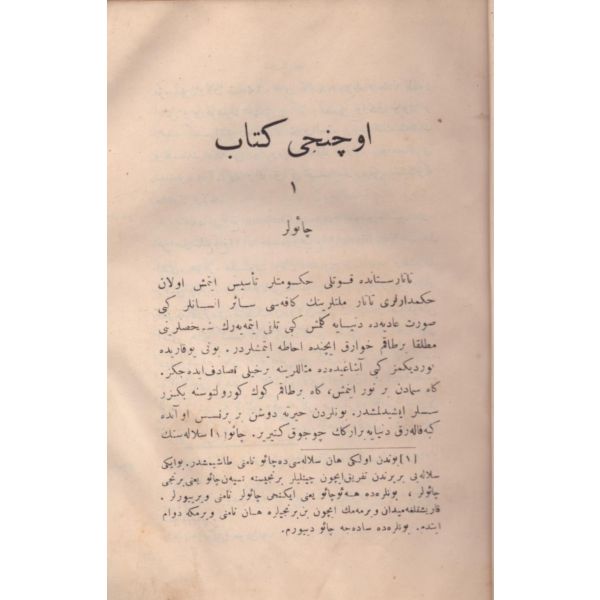 اوچنجی کتاب
١
چائولر
تاتارستانده قوتلی حکومتلر تأسیس ایتمش اولان
حکمدارلری تاتار ملتلرینك کافه‌سی سائر انسانلر کبی
صورت عادیه‌ده دنیایه کلمش کبی تلقی ایتمه‌یه‌رك شخصلرینی
مطلقا برطاقم خوارق ایچنده احاطه ایتمشلردر. بونی یوقاریده
کوردیکمز کبی آشاغیده‌ده مثاللرینه برخیلی تصادف ایده‌جکز.
کاه سمادن بر نور اینمش، کاه برطاقم کوك کورولتوسنه بکزر
سسلر ایشیدلمشدر. بونلردن حیرته دوشن بر پرنسس او آنده
کبه قاله‌رق دنیایه برارکك چوجوق کتیریر. چائو[١] سلاله‌سنك
[١] بوندن اولکی هان سلاله‌سی ده چائو نامنی طاشیمشدر. بوایکی
سلاله‌یی بربرندن تفریق ایچون چینلیلر برنجیسنه تسیه‌ن چائو یعنی برنجی
چائولر ، بونلره‌ده هه‌ئوچائو یعنی ایکنجی چائولر نامنی ویریبورلر.
قاریشقلغه میدان ویرمه‌مك ایچون بن برنجیلره هان نامنی ویرمکه دوام
ایتدم. بونلره‌ده ساده‌جه چائو دیبورم.